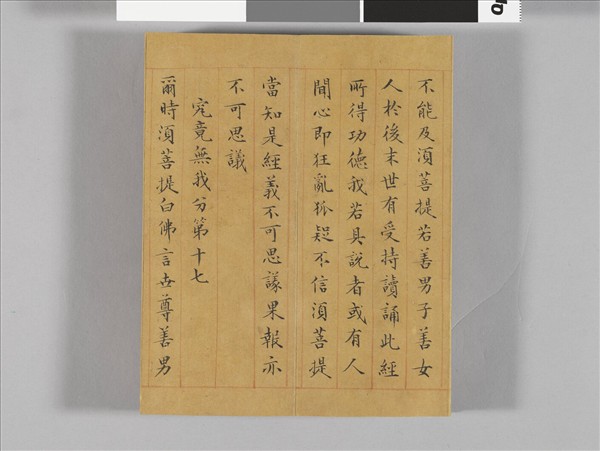 不能及湏菩提若善男子善女
人於後末世有受持讀誦此經
所得功德我若具說者或有人
聞心即狂亂狐疑不信湏菩提
當知是經義不可思議果報亦
不可思議
究竟無我分第十七
爾時湏菩提白佛言世尊善男